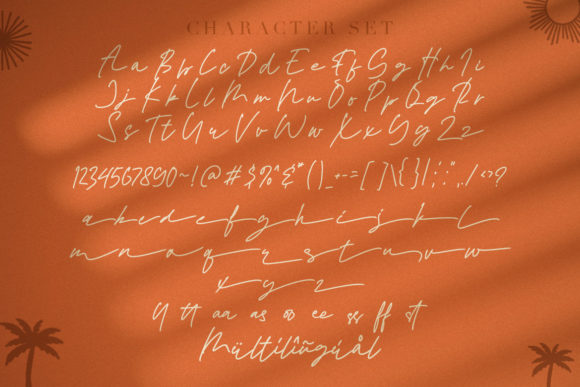 CHARACTER SET
Aa Bb Cc Dd Ee Ff Gg Hh Ii
Jj Kk Ll Mm Nn Oo Pp Qq Rr
Ss Tt Uu Vv Ww Xx Yy Zz
1234567890~!@#$%^&*()_+-=[]\{}|;':",./<>?
a b c d e f g h i j k l
m n o q r s t u v w
x y z
tt aa as oo ee ss ff st
Multilîñgúål